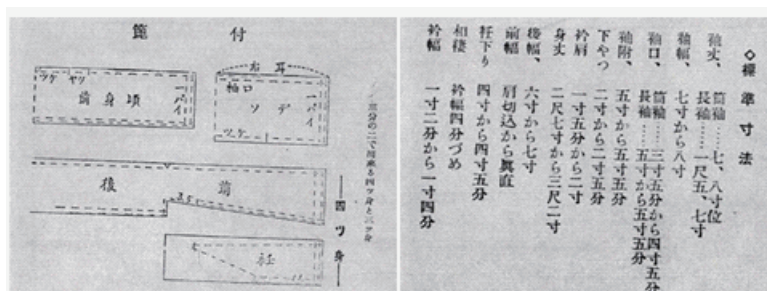 ◇標準寸法
袖丈、筒袖……七、八寸位
長袖……一尺五、七寸
袖幅、七寸から八寸
袖口、筒袖……三寸五分から四寸五分
長袖……五寸から五寸五分
袖附、五寸から五寸五分
下やつ 二寸から二寸五分
衿肩 一寸五分から二寸
身丈 二尺七寸から三尺二寸
後幅、六寸から七寸
前幅 肩切込から眞直
衽下り 四寸から四寸五分
相褄 衿幅四分づめ
衿幅 一寸二分から一寸四分
篦付
ツケ
ヤツ
前身頃
一パイ
右耳
袖口
ソデ
一パイ
ツケ
後
前
衽
四ツ身